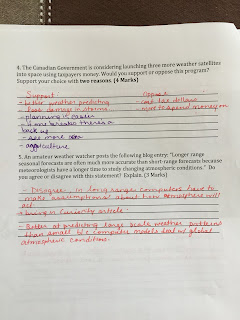 4. The Canadian Government is considering launching three more weather satellites
into space using taxpayers money. Would you support or oppose this program?
Support your choice with two reasons. (4 Marks)
Support: Oppose
- better weather predicting - cost tax dollars
- less damage in storms - more to spend money on
- planning is easier
- if one breaks there's a
back up
- see more
- agriculture
5. An amateur weather watcher posts the following blog entry: "Longer range
seasonal forecasts are often much more accurate than short-range forecasts because
meteorologists have a longer time to study changing atmospheric conditions." Do
you agree or disagree with this statement? Explain. (3 Marks)
- Disagree. In long range computers have to
make assumptions about how atmosphere will
act
- using in curiosity article
- Better at predicting large scale weather patterns
than small b/c computer models deal w/ global
atmospheric conditions.